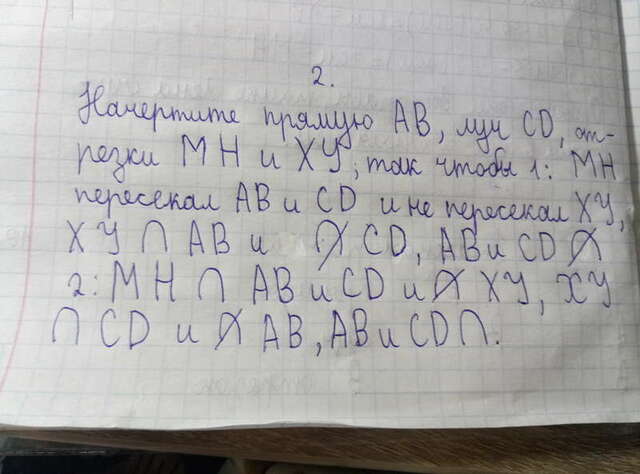 2.
Начертите прямую AB, луч CD, от-
резки MH и XY, так чтобы 1: MH
пересекал AB и CD и не пересекал XY,
XY ∩ AB и ∩̸ CD, AB и CD ∩̸
2: MH ∩ AB и CD и ∩̸ XY, XY
∩ CD и ∩̸ AB, AB и CD ∩.